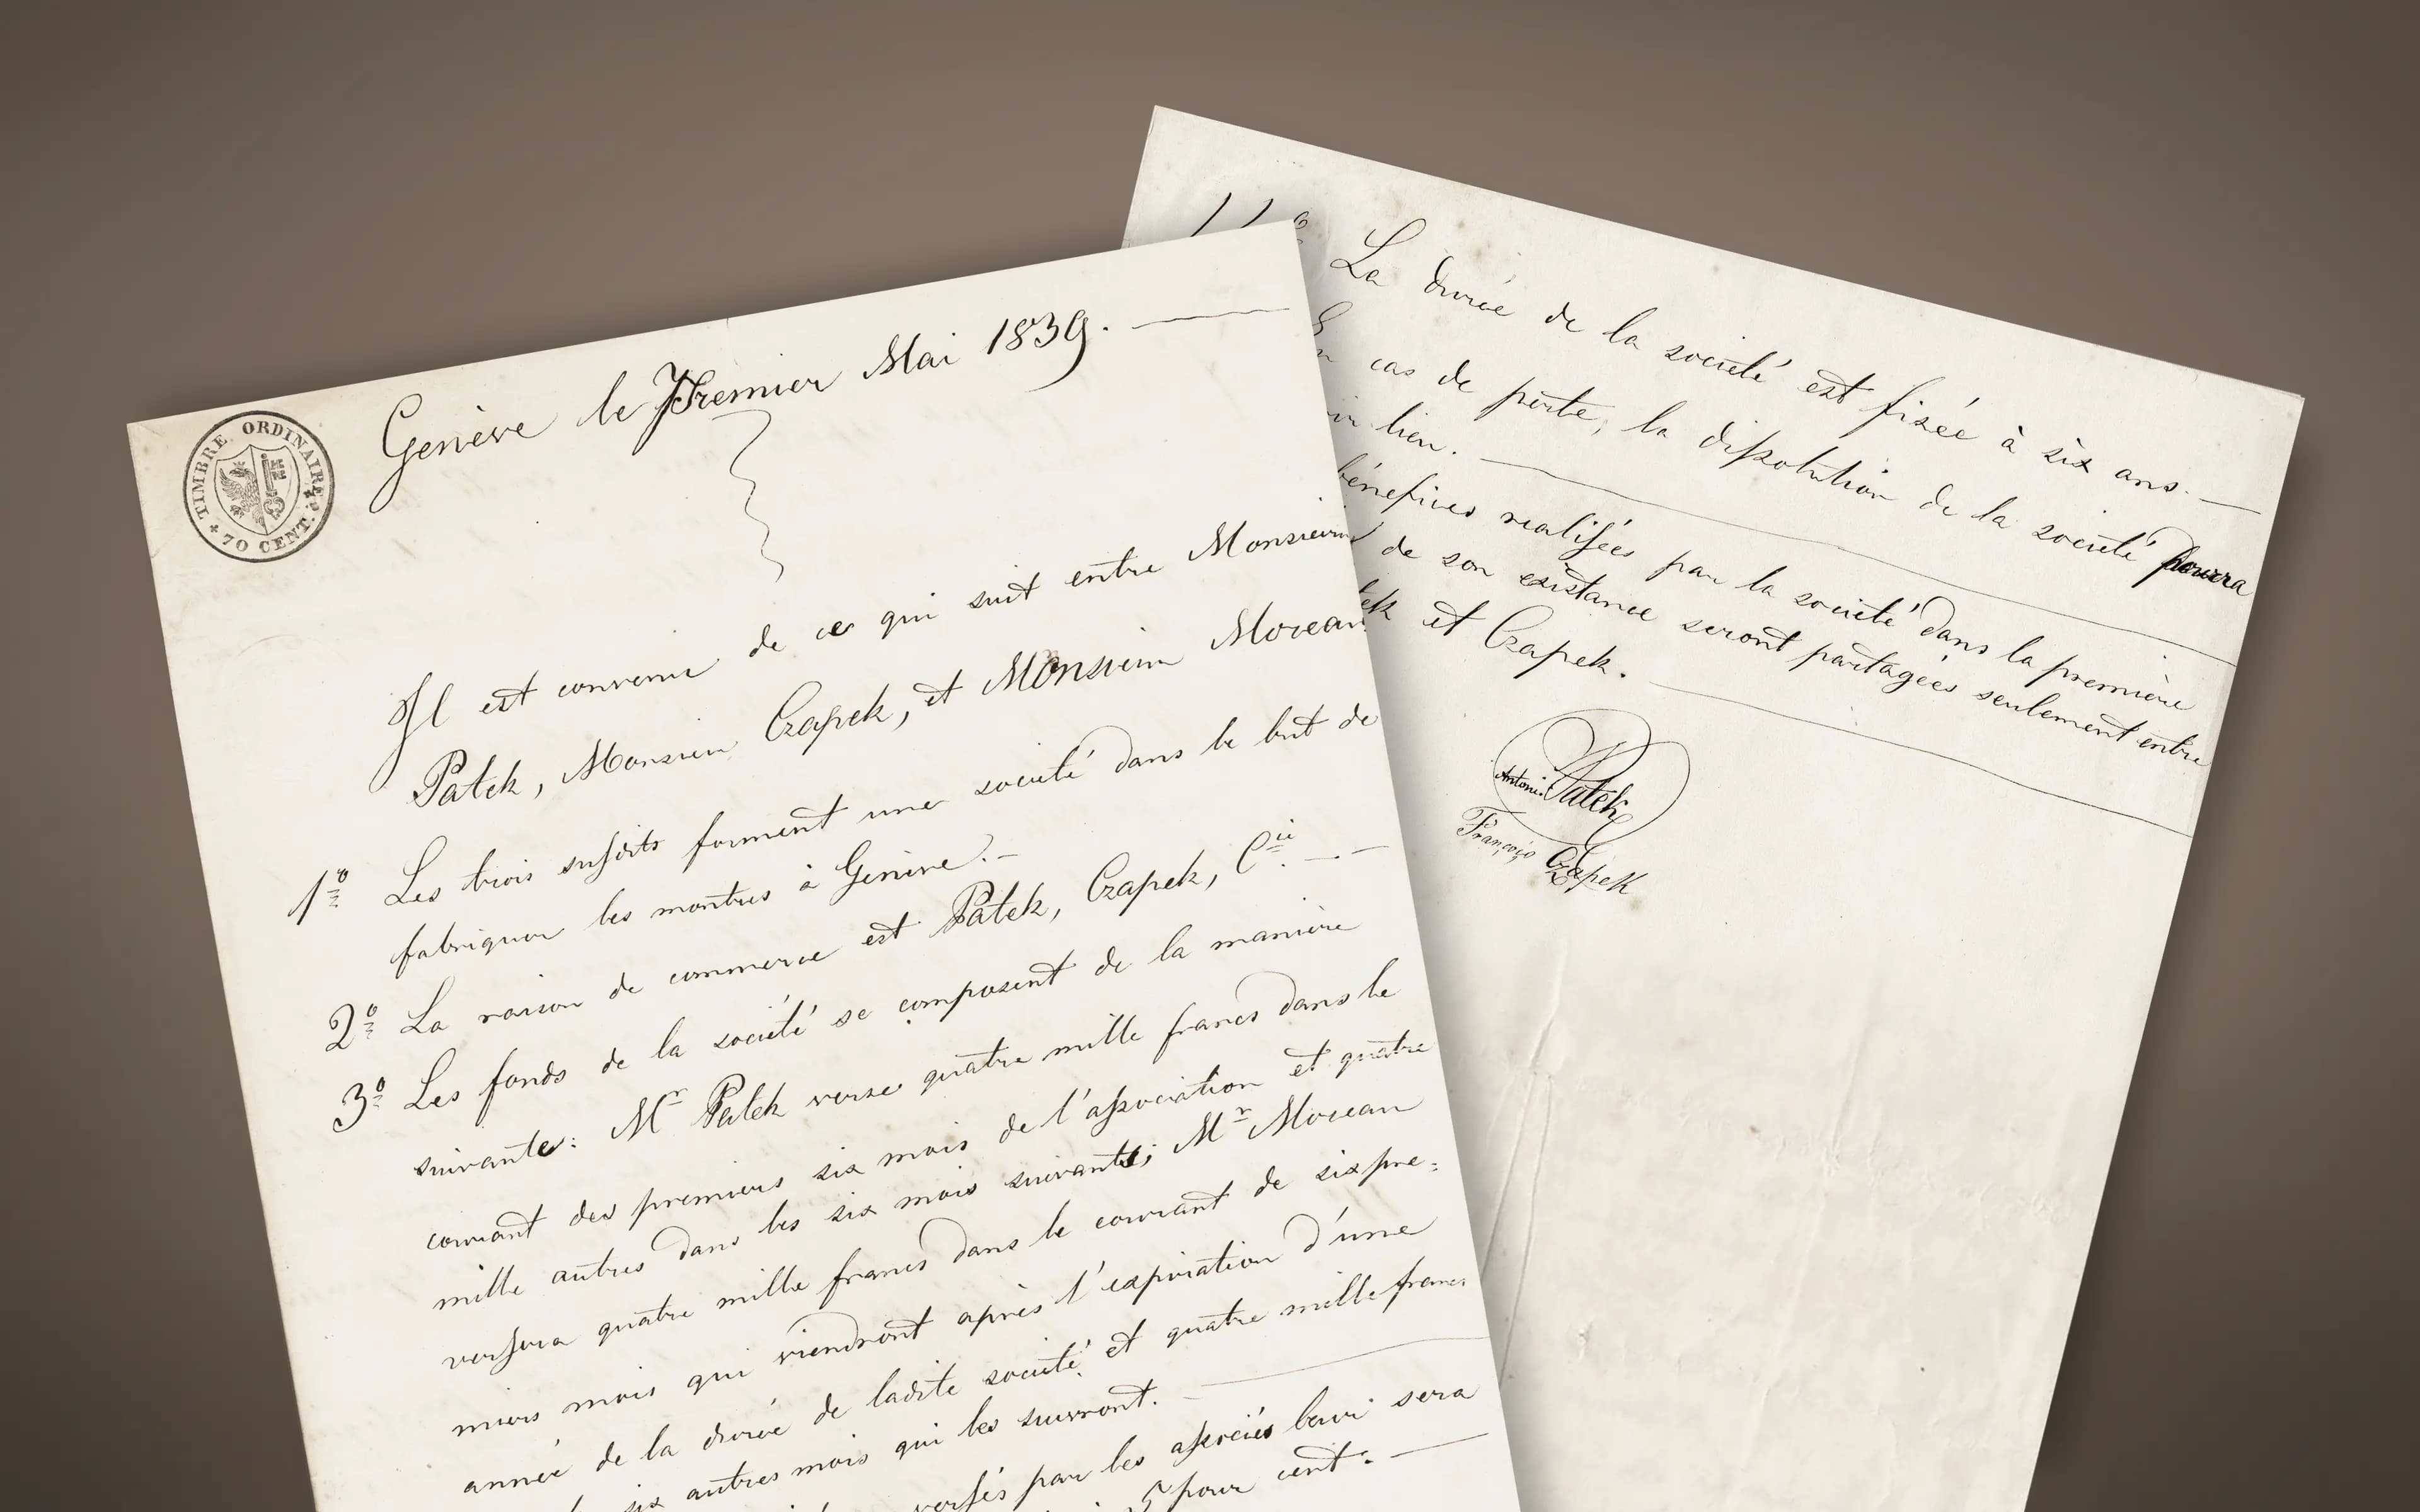 TIMBRE ORDINAIRE
70 CENT.
Genève le Premier Mai 1839.
Il est convenu de ce qui suit entre Monsieur
Patek, Monsieur Czapek, et Monsieur Moreau
1º Les trois susdits forment une société dans le but de
fabriquer les montres à Genève.
2º La raison de commerce est Patek, Czapek, Cie.
3º Les fonds de la société se composent de la manière
suivante: Mr Patek verse quatre mille francs dans le
courant des premiers six mois de l'association et quatre
mille autres dans les six mois suivants; Mr Moreau
versera quatre mille francs dans le courant de six pre=
miers mois qui viendront après l'expiration d'une
année de la durée de ladite société et quatre mille francs
six autres mois qui les suivront.
versés par les associés leur sera
5 pour cent.
11º La durée de la société est fixée à six ans.
cas de perte, la dissolution de la société pourra
lieu.
bénéfices realisées par la société dans la première
de son existance seront partagées seulement entre
et Czapek.
Antoni Patek
François Czapek